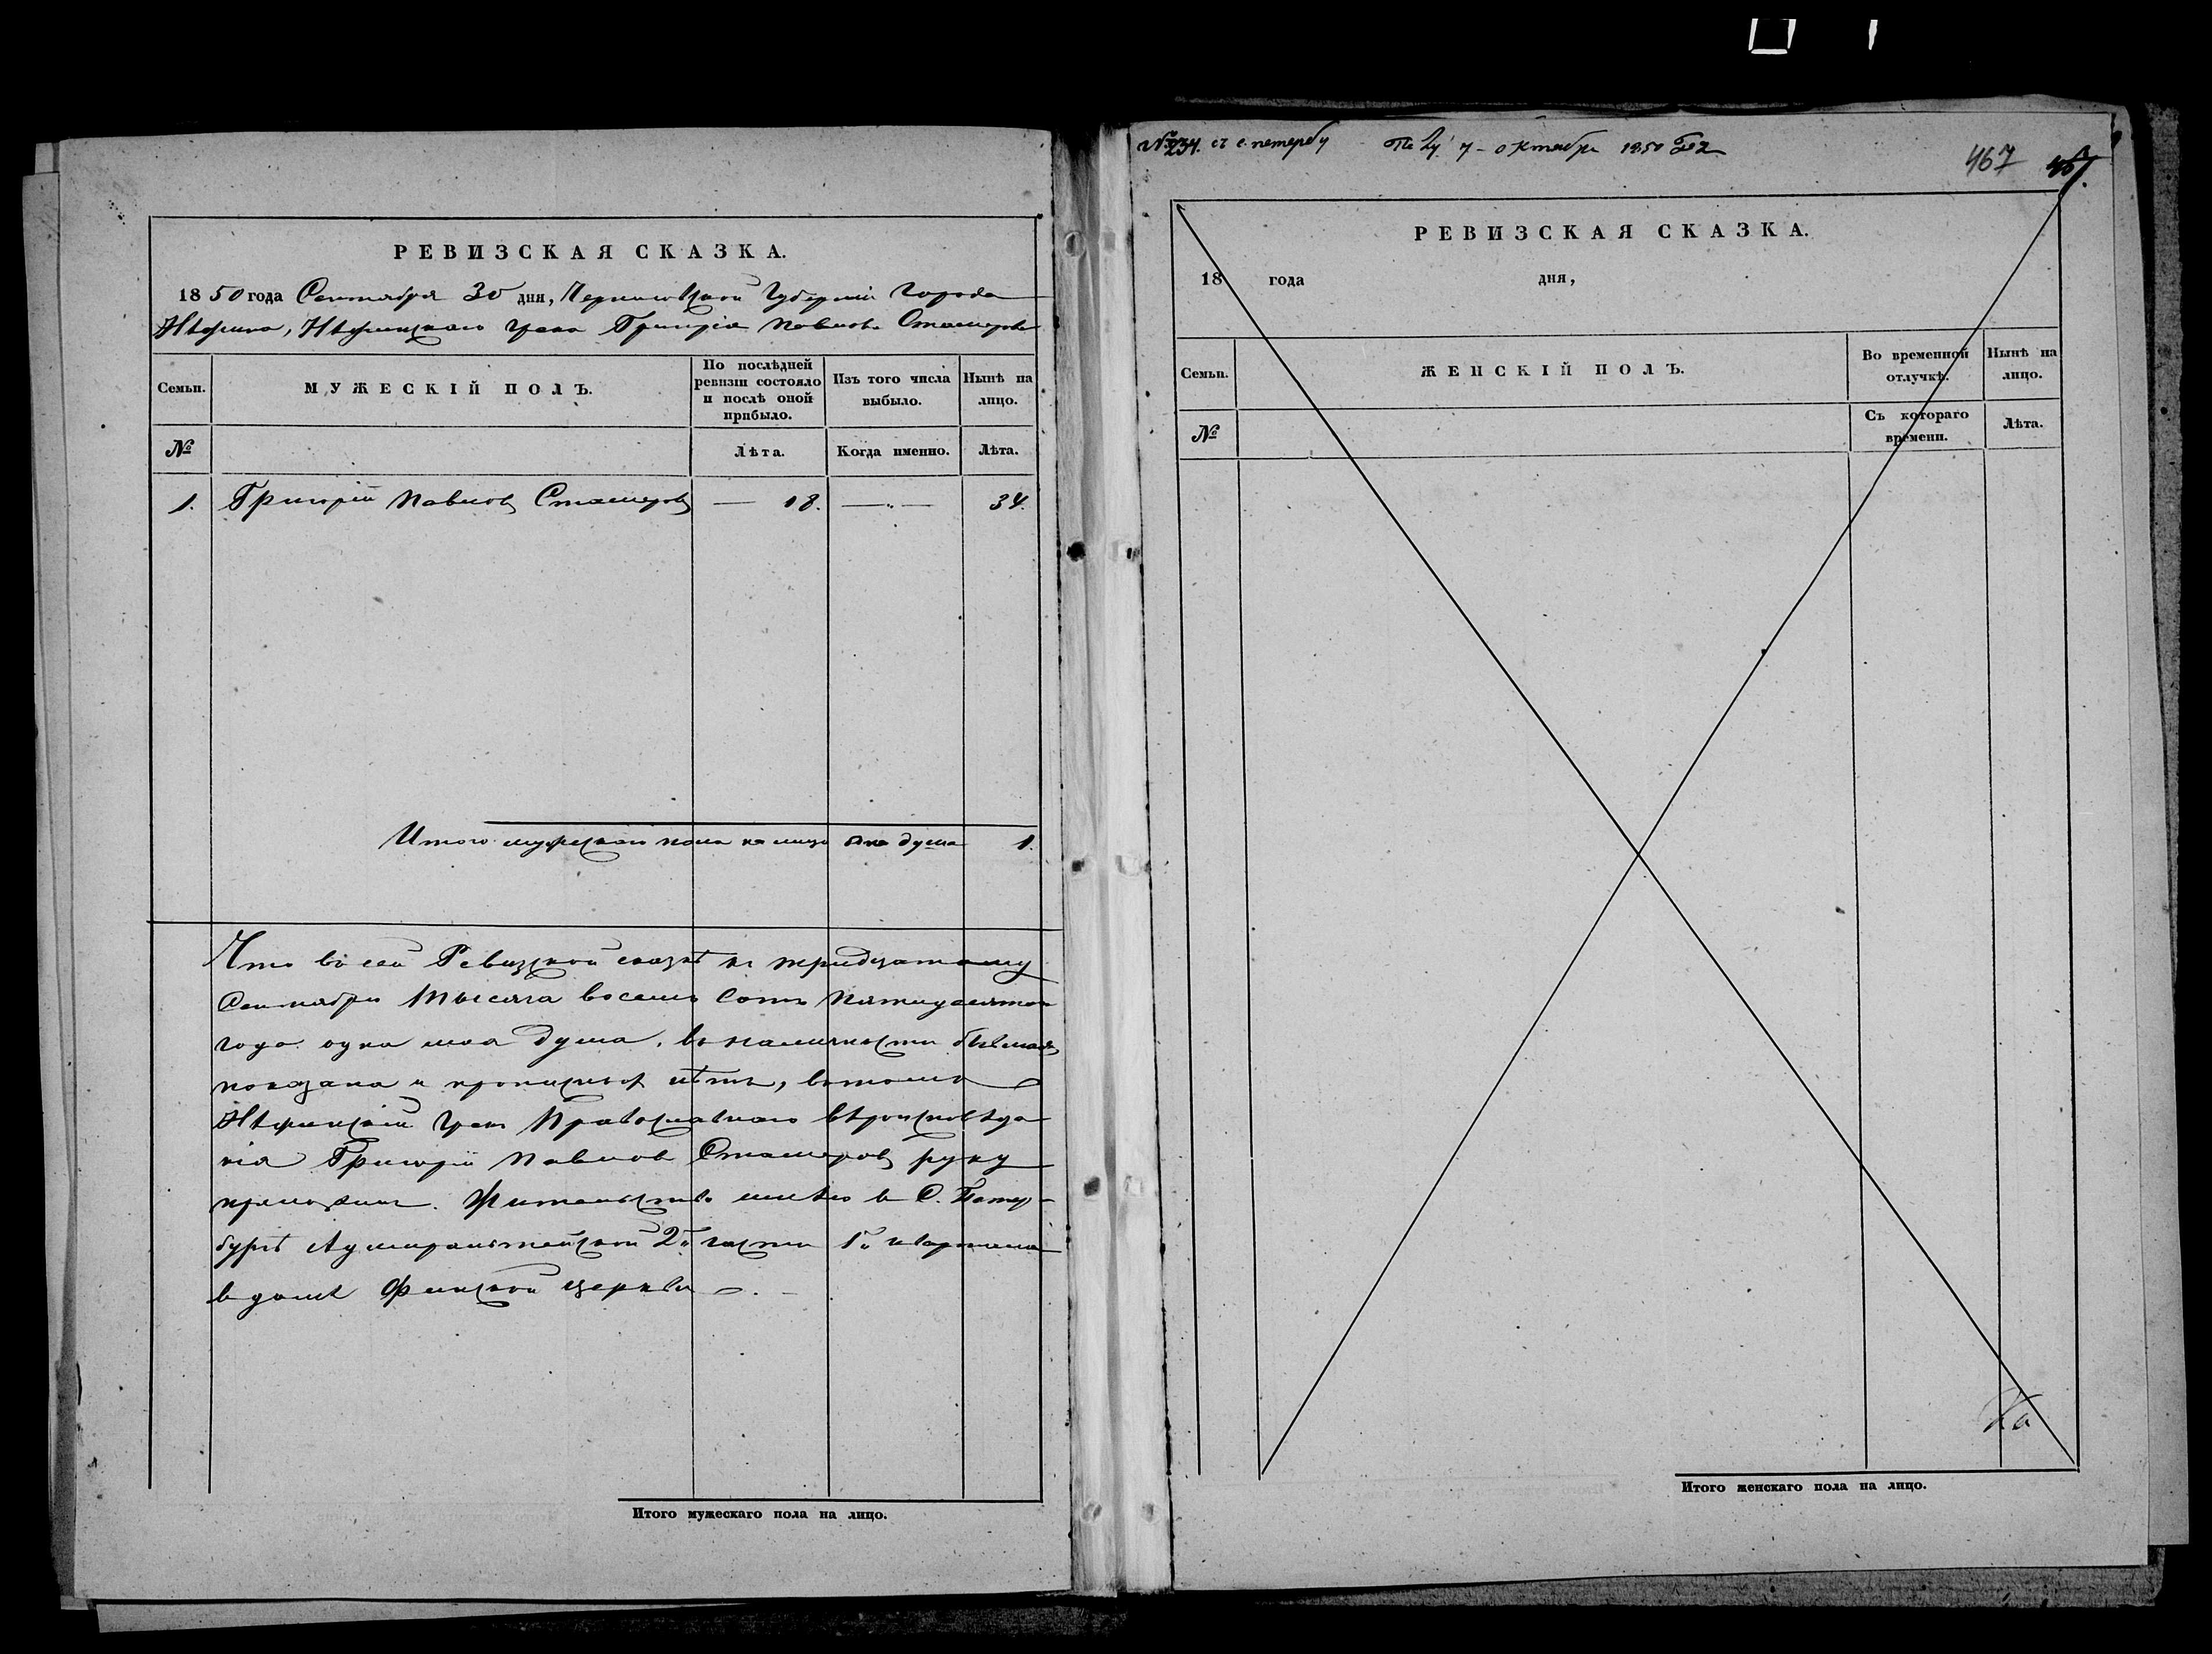 РЕВИЗСКАЯ СКАЗКА.
1850 года Сентября 30 дня, Черниговской Губернии Города
Нѣжина, Нѣжинскаго грека Григорія Павлова Стамерова
Семьи. МУЖЕСКІЙ ПОЛЪ. По послѣдней ревизіи состояло и послѣ оной прибыло. Изъ того числа выбыло. Нынѣ на лицо.
№ Лѣта. Когда именно. Лѣта.
1. Григорій Павлов — 18. —.— 34.
Итого мужескаго пола на лицо одна душа 1.
Что въ сей Ревизской сказкѣ къ тридцатому
Сентября тысяча восемь сотъ пятидесятаго
года одна моя душа, въ наличности бывшая,
показана и прописныхъ нѣтъ, въ томъ
Нѣжинскій грекъ Православнаго вѣроисповѣда
нія Григорій Павлов руку
приложилъ. Жительство имѣю в С. Петер-
бургѣ Адмиралтейской 2й части 1го квартала
в домѣ Финской церкви —.—
Итого мужескаго пола на лицо.
№ 234. октября 1850
467
РЕВИЗСКАЯ СКАЗКА.
18 года дня,
Семьи. ЖЕНСКІЙ ПОЛЪ. Во временной отлучкѣ. Нынѣ на лицо.
№ Съ котораго времени. Лѣта.
Итого женскаго пола на лицо.